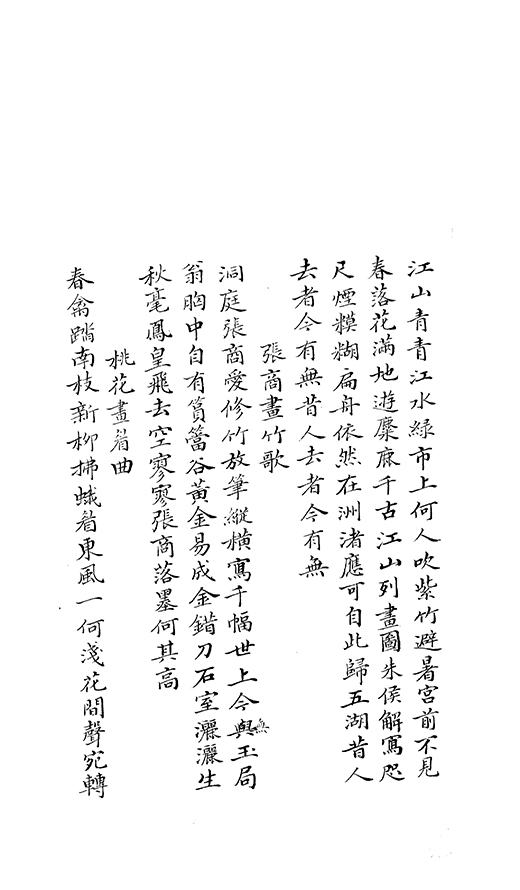 江山青青江水綠市上何人吹紫竹避暑宮前不見
春落花滿地遊麋麻千古江山列畫圖朱侯解寫咫
尺煙糢糊扁舟依然在洲渚應可自此歸五湖昔人
去者今有無昔人去者今有無
張商畫竹歌
洞庭張商愛修竹放筆縱橫寫千幅世上今與無玉局
翁胸中自有篔簹谷黃金易成金錯刀石室灑灑生
秋毫鳳皇飛去空寥寥張商落墨何其高
桃花畫眉曲
春禽踏南枝新柳拂蛾眉東風一何淺花間聲宛轉